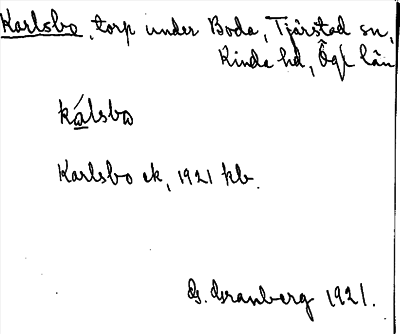 Karlsbo, torp under Boda, Tjärstad sn,
Kinda hd, Ögl län
kálsbω
Karlsbo ek, 1921 kb.
G. Granberg 1921.